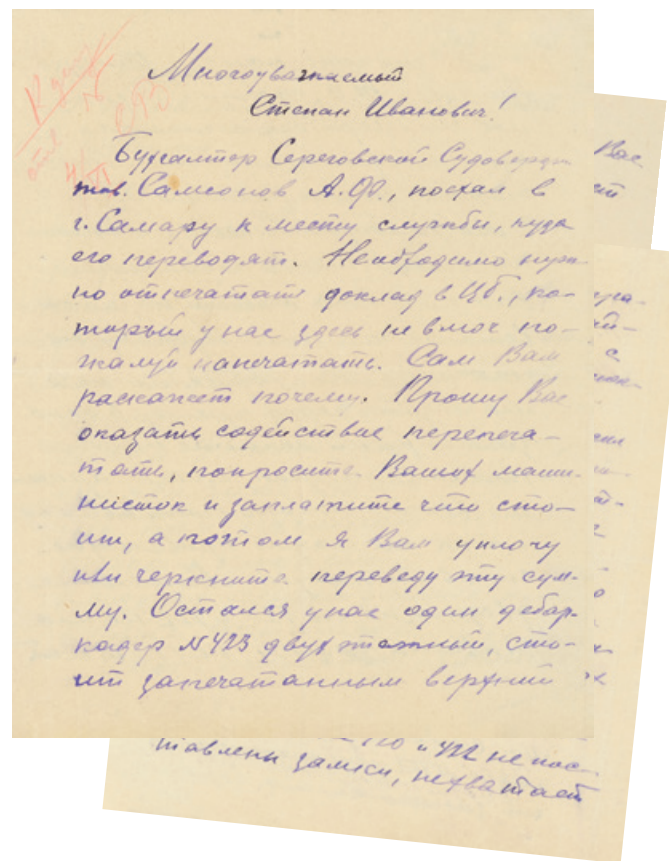 Многоуважаемый
Степан Иванович!
Бухгалтер Сереговской Судоверфи Вас
тов. Самсонов А.Ф., поехал в
г. Самару к месту службы, куда
его переводят. Необходимо нуж-
но отпечатать доклад в ЦБ., ко-
торый у нас здесь не вмог по-
жалуй напечатать. Сам Вам с
раскажет почему. Прошу Вас
оказать содействие перепеча-
тать, попросите Ваших маши-
нисток и заплатите что сто-
ит, а потом я Вам уплочу
или черкните переведу эту сум-
му. Остался у нас один дебар-
кадер №423 двух этажный, сто-
ит запечатанным верхний
и 422 не пос-
тавлены замки, нехватает